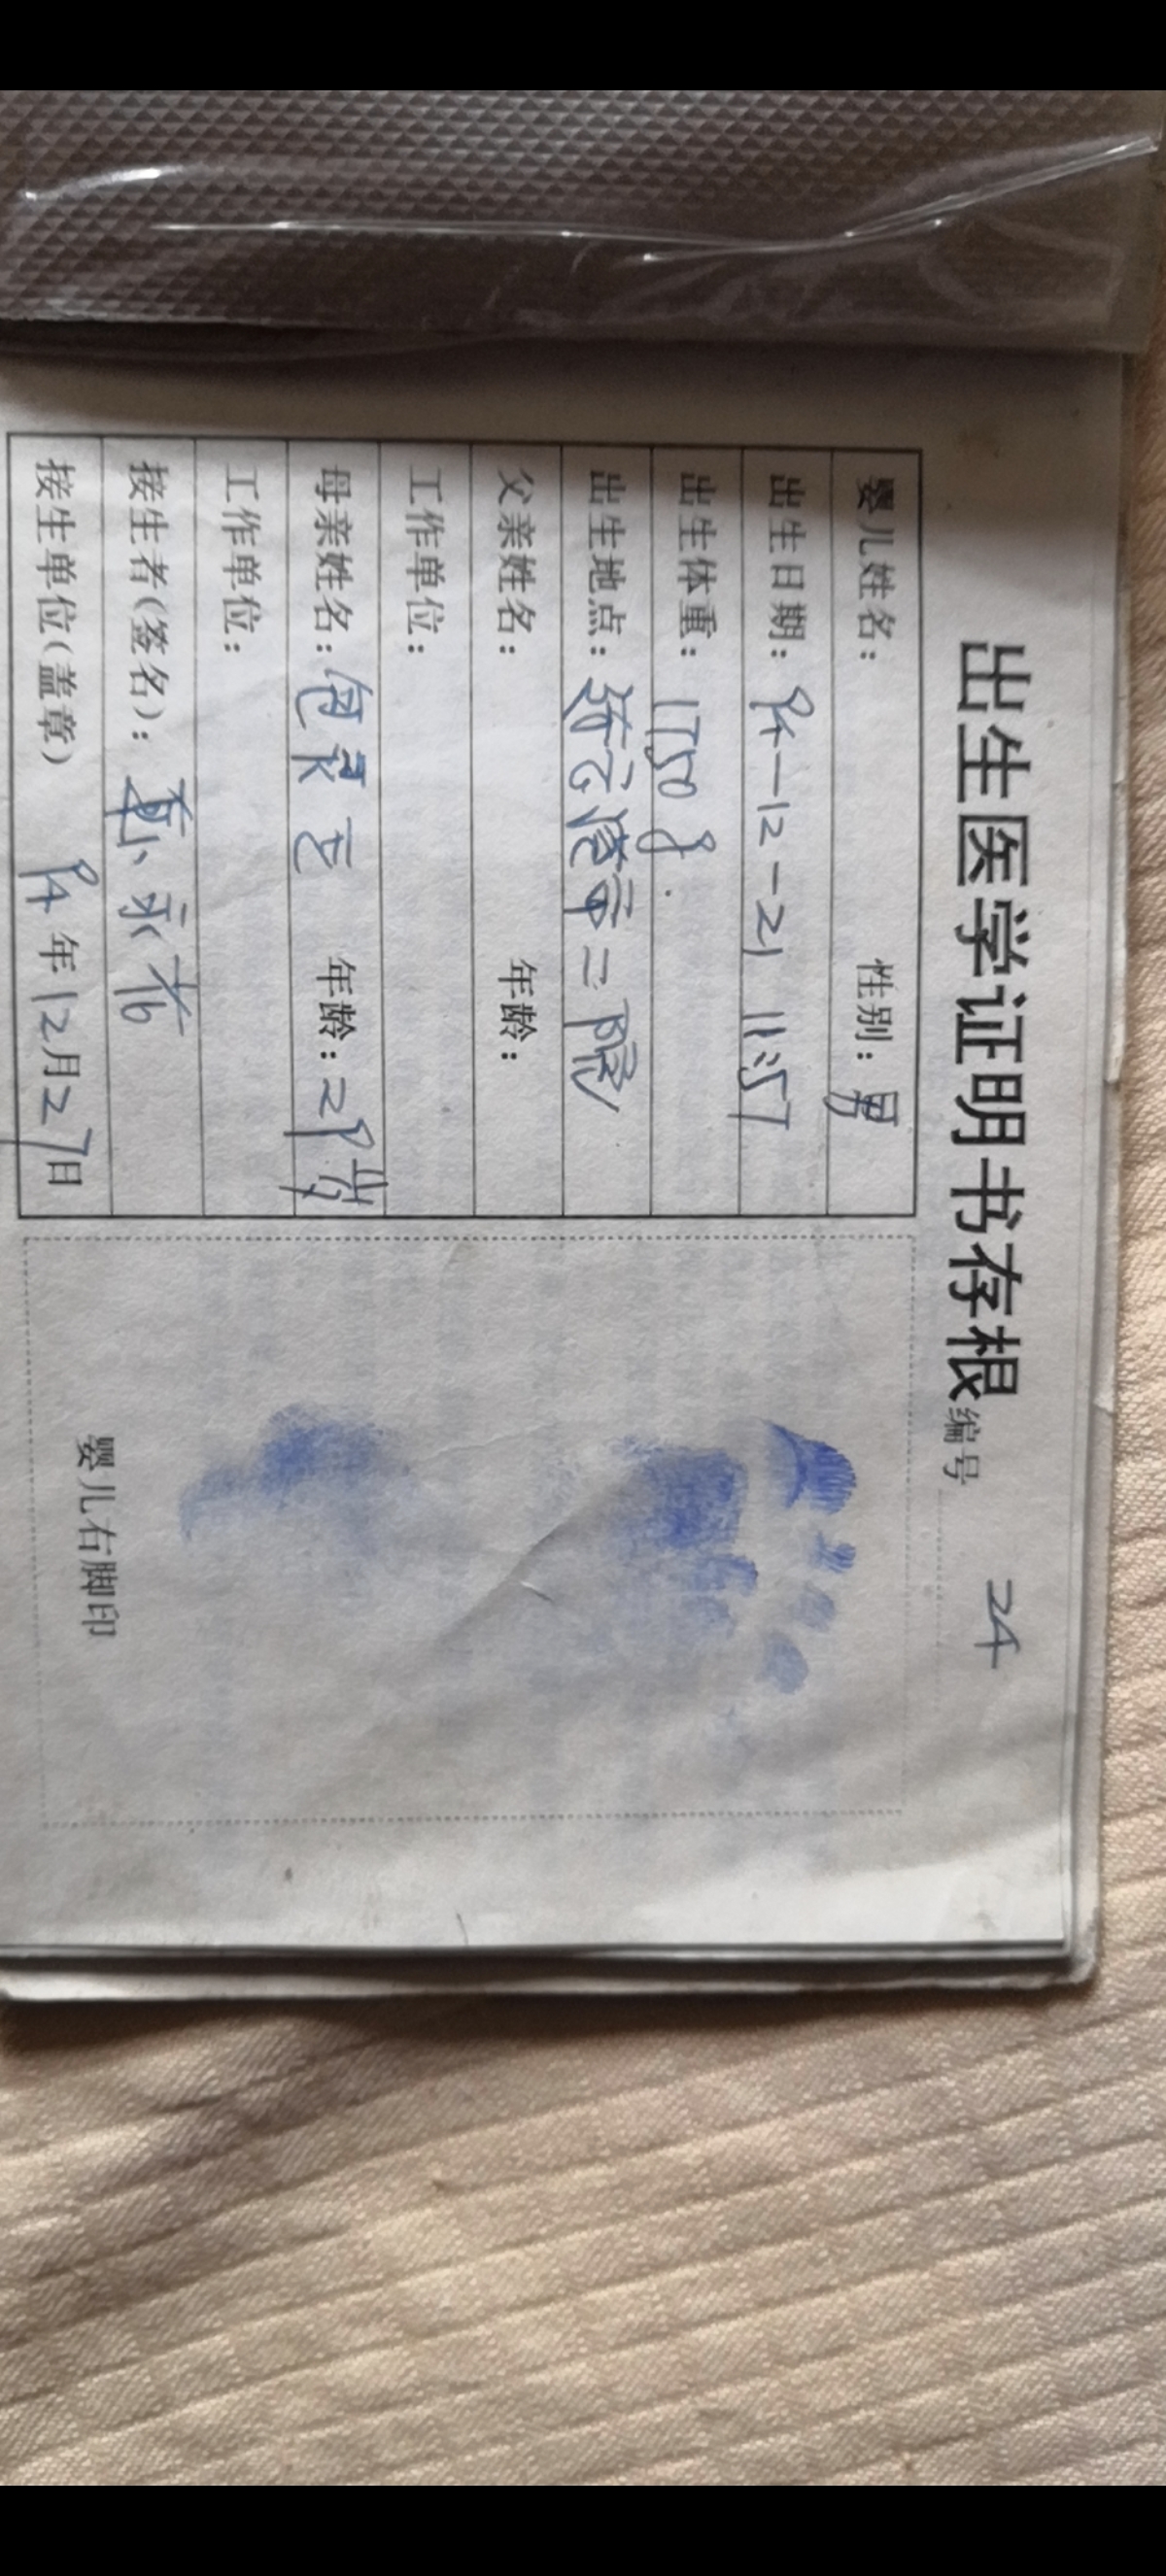 出生医学证明书存根 编号 24
婴儿姓名: 性别: 男
出生日期: 94-12-21 11:57
出生体重: 1750 g.
出生地点: 连云港市二院
父亲姓名: 年龄:
工作单位:
母亲姓名: 年龄: 29岁
工作单位:
接生者(签名):
接生单位(盖章) 94年12月27日
婴儿右脚印